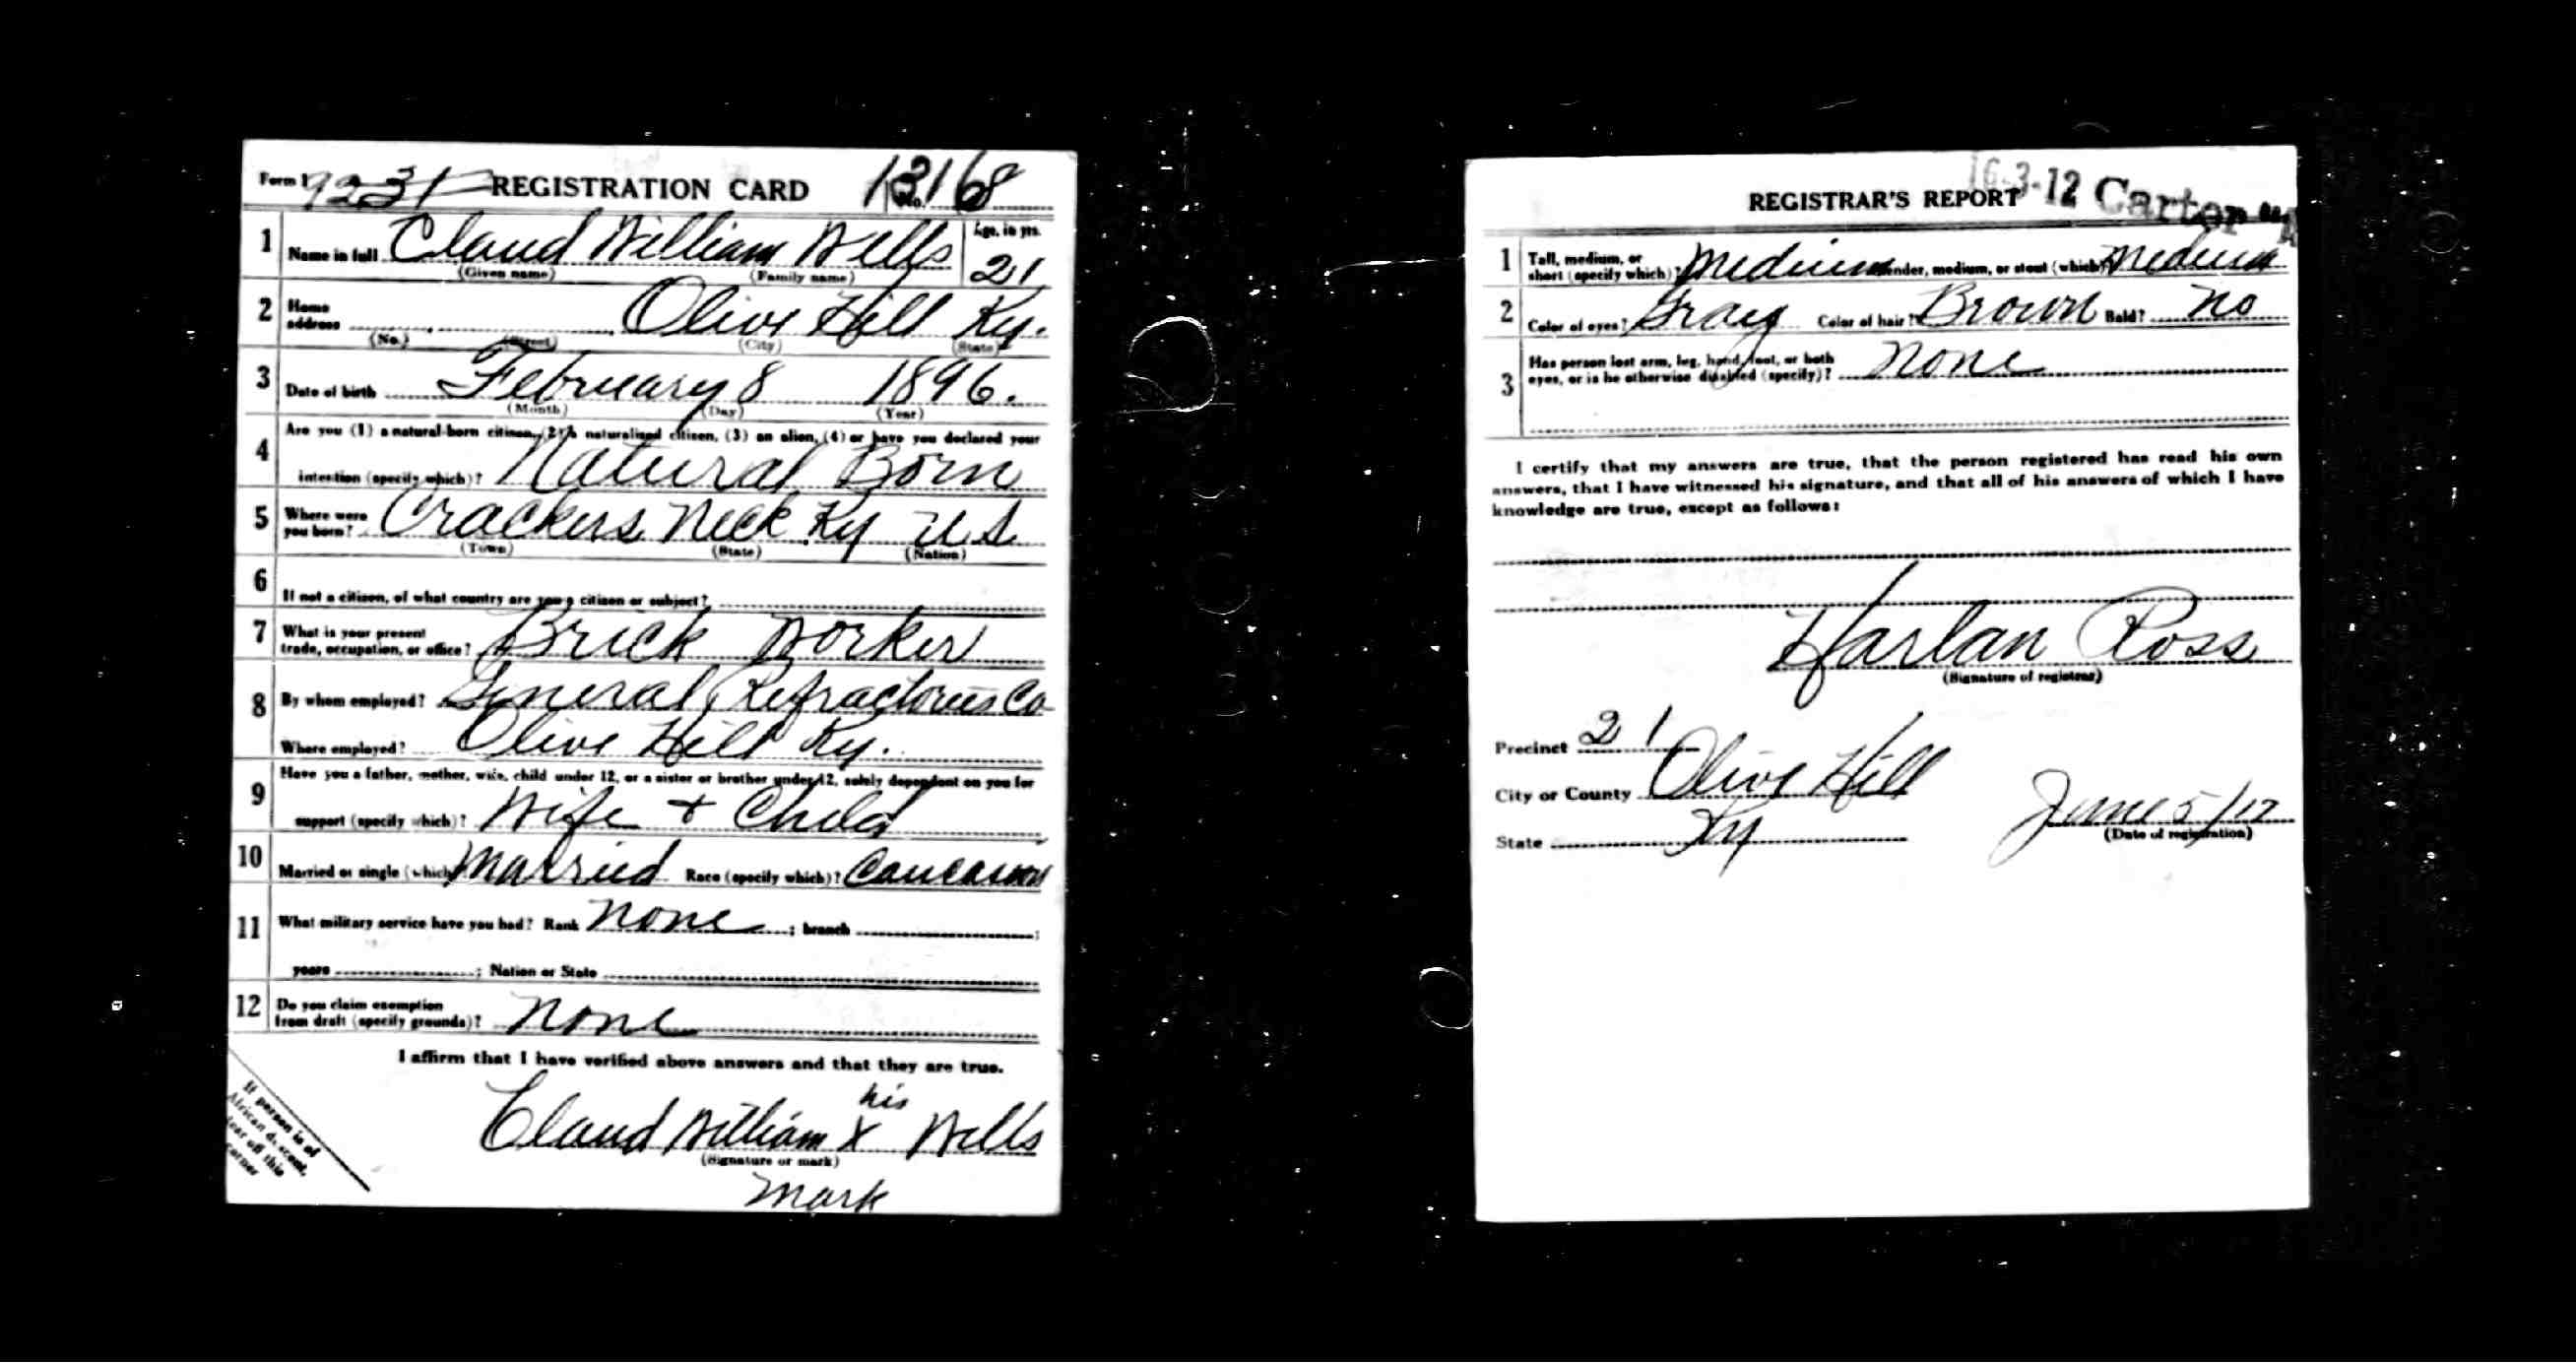 Form 1 9231 REGISTRATION CARD No. 13168
1 Name in full Claud William Wells Age, in yrs. 21
(Given name) (Family name)
2 Home address Olive Hill Ky.
(No.) (Street) (City) (State)
3 Date of birth February 8 1896.
(Month) (Day) (Year)
4 Are you (1) a natural-born citizen, (2) a naturalized citizen, (3) an alien, (4) or have you declared your
intention (specify which)? Natural Born
5 Where were you born? Crackers Neck Ky U S
(Town) (State) (Nation)
6 If not a citizen, of what country are you a citizen or subject?
7 What is your present trade, occupation, or office? Brick Worker
8 By whom employed? General Refractories Co
Where employed? Olive Hill Ky.
9 Have you a father, mother, wife, child under 12, or a sister or brother under 12, solely dependent on you for
support (specify which)? Wife + Child
10 Married or single (which) Married Race (specify which)? Caucasion
11 What military service have you had? Rank None ; branch ;
years ; Nation or State
12 Do you claim exemption from draft (specify grounds)? None
I affirm that I have verified above answers and that they are true.
his
Claud William X Wells
(Signature or mark)
Mark
If person is of
African descent,
tear off this
corner
REGISTRAR'S REPORT 16-3-12 Carter
1 Tall, medium, or short (specify which)? Medium Slender, medium, or stout (which)? Medium
2 Color of eyes? Gray Color of hair? Brown Bald? No
3 Has person lost arm, leg, hand, foot, or both
eyes, or is he otherwise disabled (specify)? None
I certify that my answers are true, that the person registered has read his own
answers, that I have witnessed his signature, and that all of his answers of which I have
knowledge are true, except as follows:
Harlan Ross
(Signature of registrar)
Precinct 21
City or County Olive Hill
State Ky June 5/17
(Date of registration)